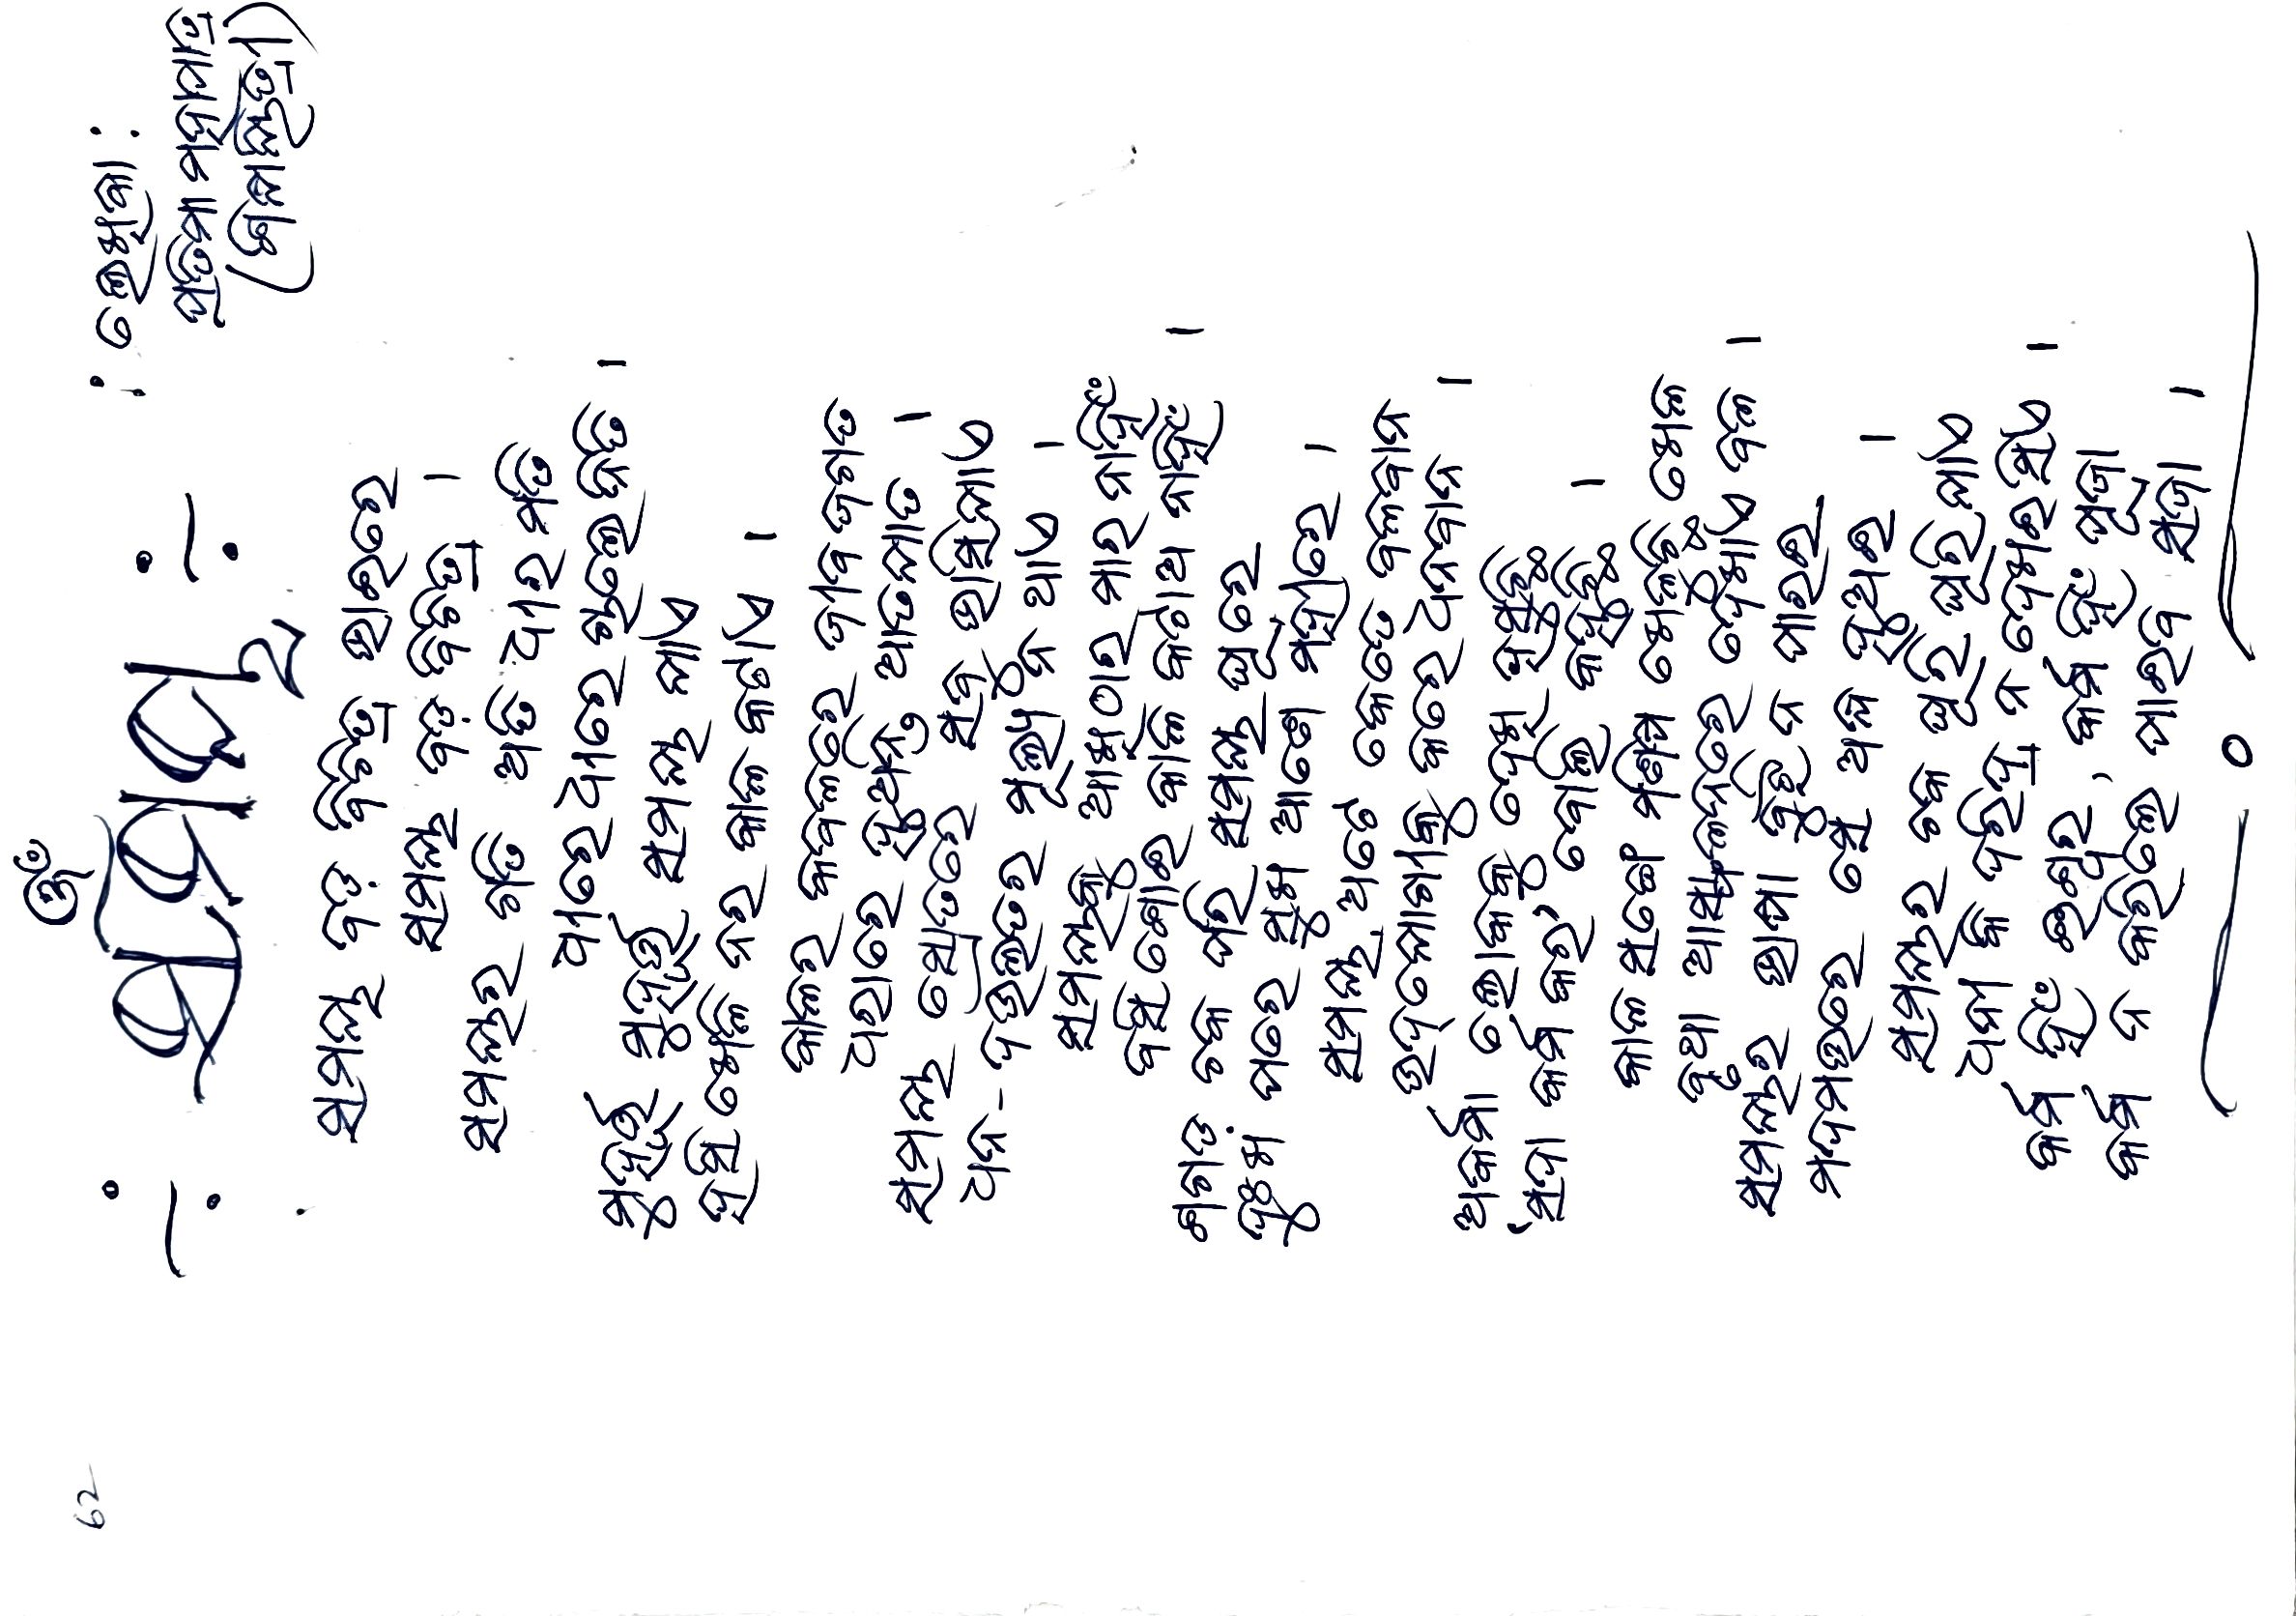 62
ଓଁ
÷ ସମୟ ÷
: ଲେଖିକା :
ପ୍ରତିମା ମହାପାତ୍ର
(ଶିକ୍ଷୟିତ୍ରୀ)
ସମୟ ବଡ଼ ବିଚିତ୍ର ଭାଇରେ
ସମୟ ବଡ଼ ବିଚିତ୍ର ।
ସମୟର ଗତି ଅତି ଧୀର ମତି
ଧୀରେ ଧୀରେ ଚାଲେ ନିତି ।
ମୁହୂର୍ତ୍ତ ମୁହୂର୍ତ୍ତ ସମୟ ଯାଏ
ହସି ଖେଳି ନର କାଳ କଟାଏ ।
କାଳର କବଳରେ ଜୀବ ଜଗତ
ଧରାରେ ହୁଅନ୍ତି ଆତଯାତ ।
ସମୟ ସ୍ରୋତରେ ସବୁ ଭାସିଯାଏ
ଧନ - ଦଉଲତର ମୂଲ୍ୟ ନ ଥାଏ ।
ସମୟକୁ ଆଖିଠାର ମାର ନାହିଁ
ବସି ଶୋଇ କାଳ କଟାଅ ନାହିଁ ।
ଶଗଡ଼ ଚକ ପରି ସମୟ ଘୂରେ
ଦୁଃଖ ପରେ ସୁଖ ଆଶେ ମହୀରେ ।
ସମୟ ଅଟେ କେତେ ବଳବାନ
ଉଦ୍‌ଯୋଗୀକୁ କରେ ଧନବାନ ।
ଅକର୍ମା ଲୋକକୁ ଦେଖି ହସୁଛି
'ସଦା କର୍ମ କର' ବୋଲି କହୁଛି ।
କାଳ ସଙ୍ଗେ ମଣିଷ ଖେଳୁଛି ଖେଳ
ବୃଥା ଆସ୍ଫାଳନରେ ଦେଖାଏ ବଳ ।
ସମୟର ଭାଷା ବୁଝି ନ ପାରଇ
ମଦମତ୍ତରେ ସେ ଅନ୍ଧ ହୁଅଇ ।
ସମୟର ଚକ ଘୂରି ଘୂରି ଯାଏ
ଧନୀ କି ଦରିଦ୍ର ନ ଦେଖଇ ସିଏ ।
କର୍ମ ହିଁ ଈଶ୍ୱର, କର୍ମ ହିଁ ପୂଜା
କର୍ମ ନ କରିଲେ ପାଇବ ସଜା ।